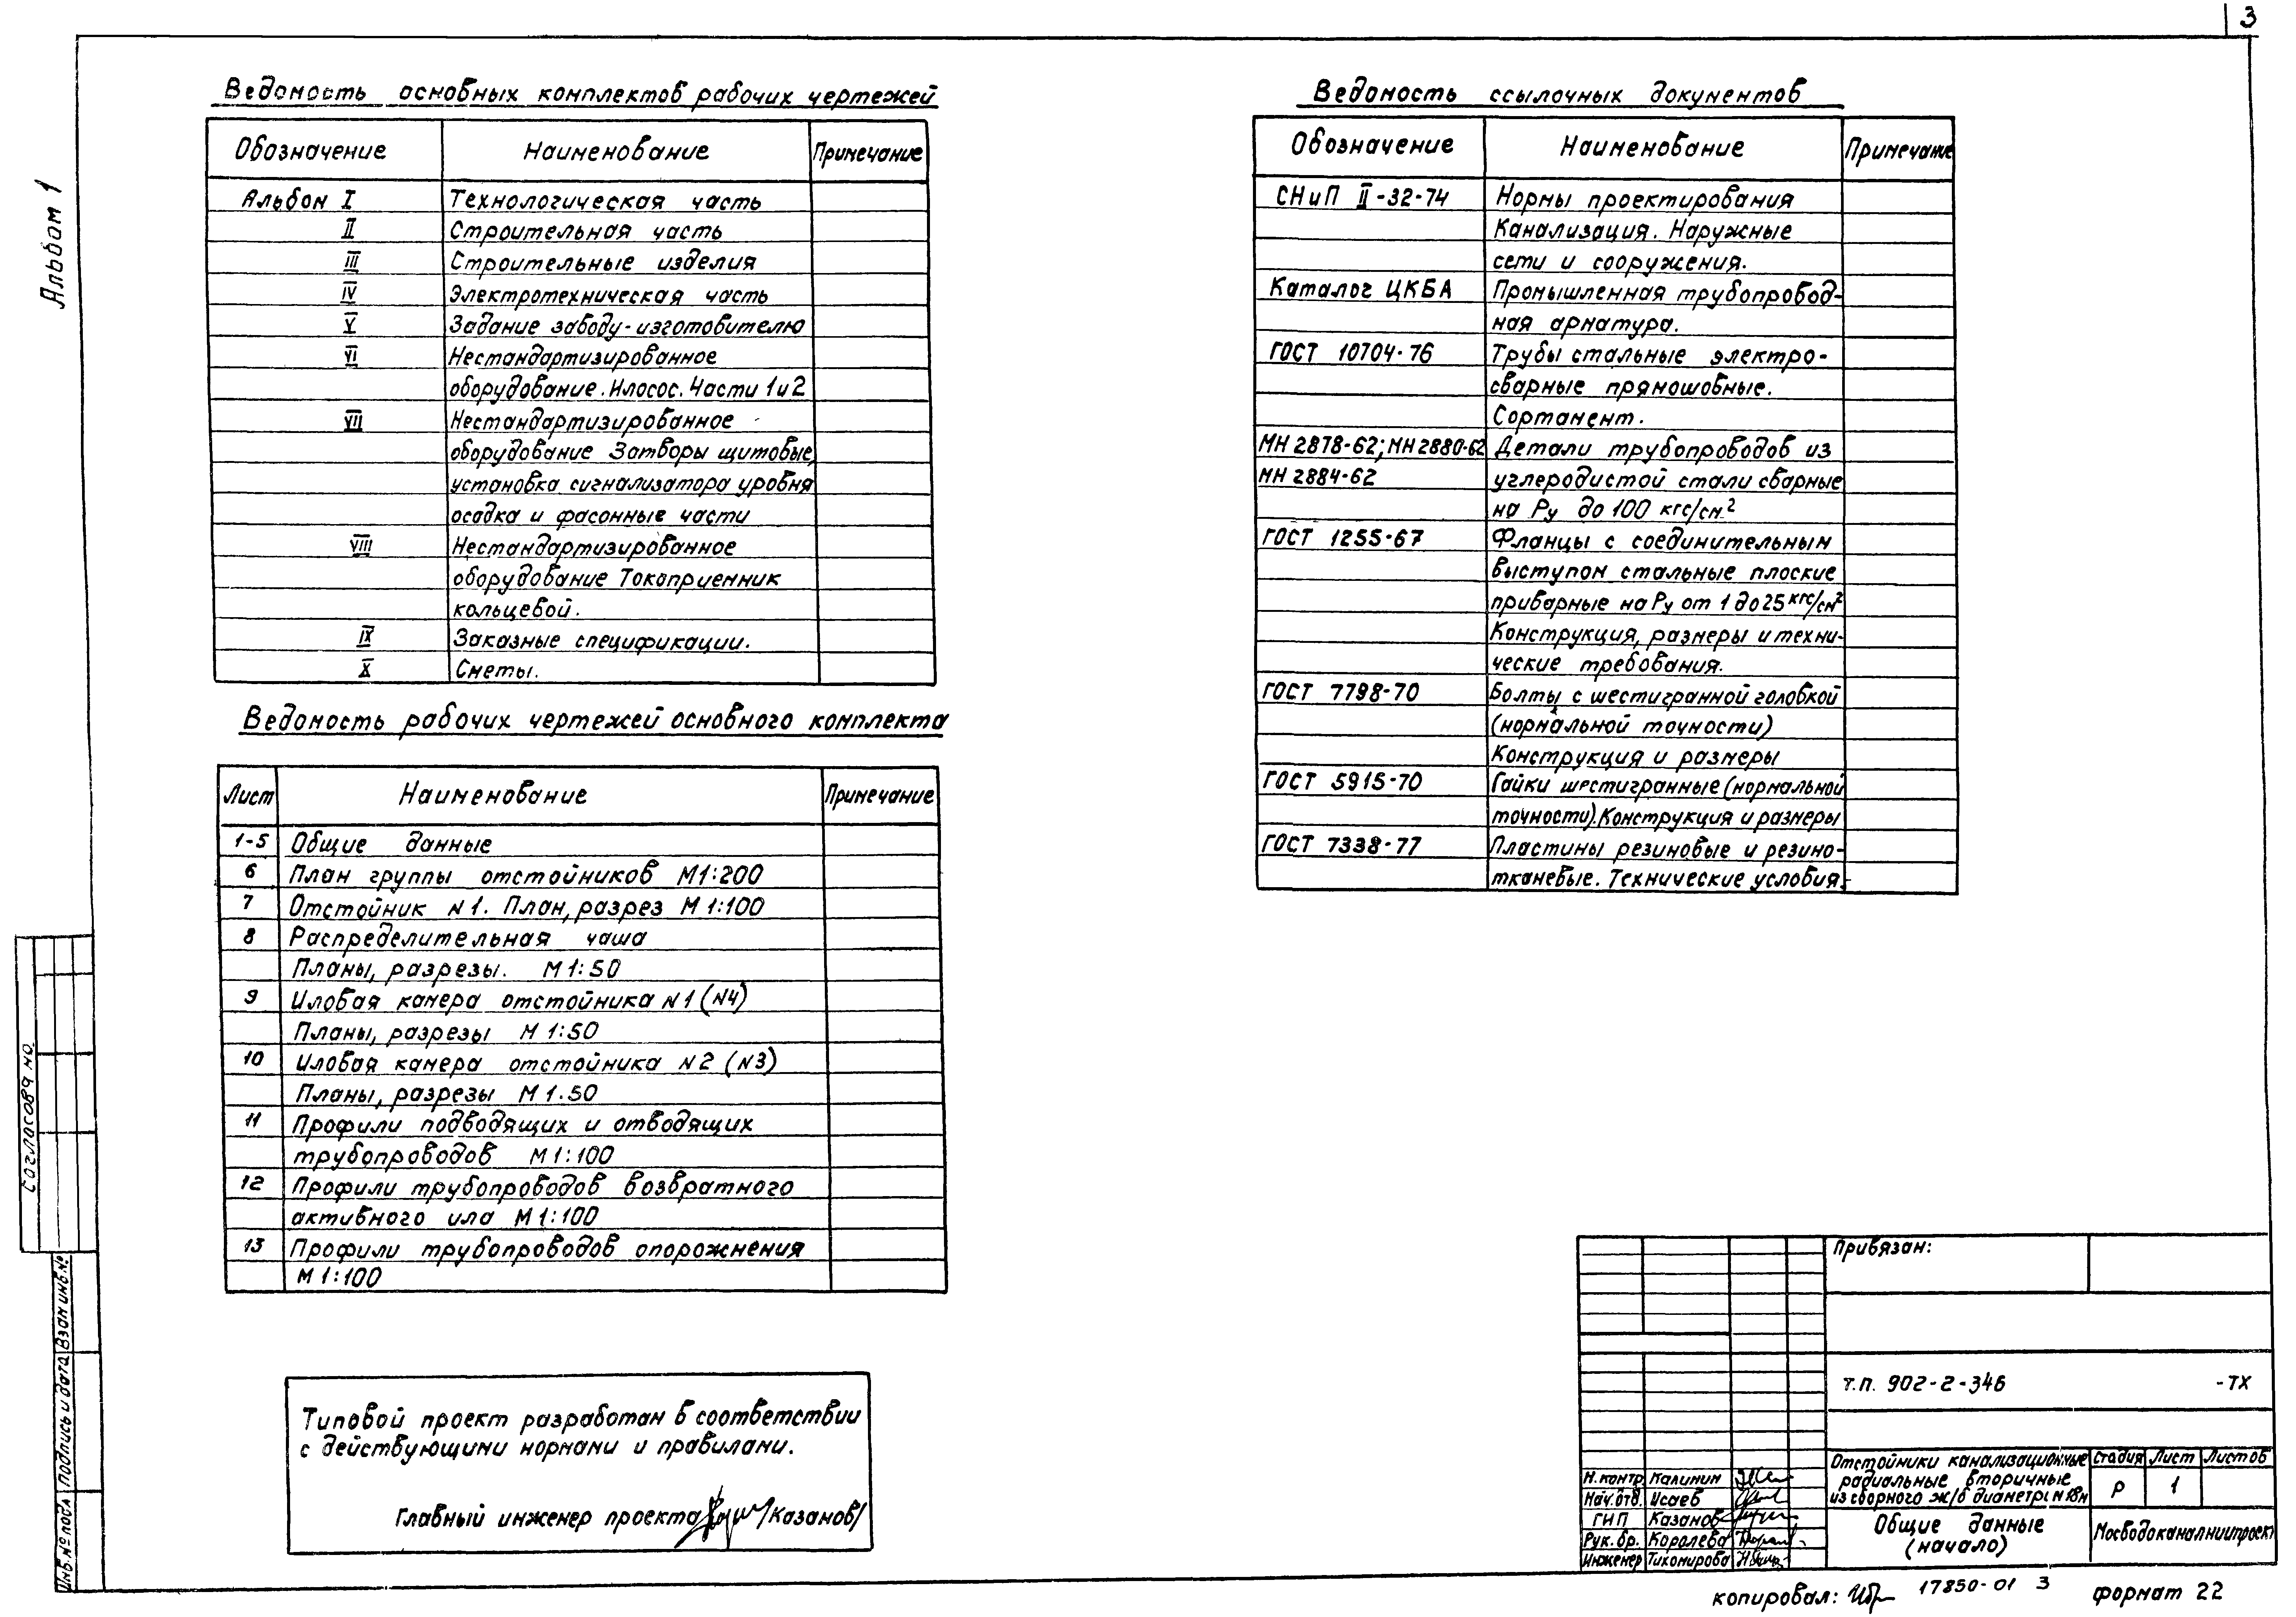 3
Альбом 1
Ведомость основных комплектов рабочих чертежей
Обозначение Наименование Примечание
Альбом I Технологическая часть
II Строительная часть
III Строительные изделия
IV Электротехническая часть
V Задание заводу-изготовителю
VI Нестандартизированное
оборудование. Илосос. Части 1 и 2
VII Нестандартизированное
оборудование Затворы щитовые,
установка сигнализатора уровня
осадка и фасонные части
VIII Нестандартизированное
оборудование Токоприемник
кольцевой.
IX Заказные спецификации.
X Сметы.
Ведомость рабочих чертежей основного комплекта
Лист Наименование Примечание
1-5 Общие данные
6 План группы отстойников М1:200
7 Отстойник N1. План, разрез М 1:100
8 Распределительная чаша
Планы, разрезы. М 1:50
9 Иловая камера отстойника N1 (N4)
Планы, разрезы М 1:50
10 Иловая камера отстойника N2 (N3)
Планы, разрезы М 1.50
11 Профили подводящих и отводящих
трубопроводов М1:100
12 Профили трубопроводов возвратного
активного ила М1:100
13 Профили трубопроводов опорожнения
М 1:100
Типовой проект разработан в соответствии
с действующими нормами и правилами.
Главный инженер проекта /Казанов/
Ведомость ссылочных документов
Обозначение Наименование Примечание
СНиП II-32-74 Нормы проектирования
Канализация. Наружные
сети и сооружения.
Каталог ЦКБА Промышленная трубопровод-
ная арматура.
ГОСТ 10704-76 Трубы стальные электро-
сварные прямошовные.
Сортамент.
МН 2878-62; МН 2880-62 Детали трубопроводов из
МН 2884-62 углеродистой стали сварные
на Ру до 100 кгс/см²
ГОСТ 1255-67 Фланцы с соединительным
выступом стальные плоские
приварные на Ру от 1 до 25 кгс/см²
Конструкция, размеры и техни-
ческие требования.
ГОСТ 7798-70 Болты с шестигранной головкой
(нормальной точности)
Конструкция и размеры
ГОСТ 5915-70 Гайки шестигранные (нормальной
точности). Конструкция и размеры
ГОСТ 7338-77 Пластины резиновые и резино-
тканевые. Технические условия.
Согласовано
Инв. № подл Подпись и дата Взам инв. №
Привязан:
т.п. 902-2-346 -ТХ
Отстойники канализационные
радиальные вторичные
из сборного ж/б диаметром 18м
Стадия Лист Листов
Р 1
Н. контр. Калинин
Нач. отд. Исаев
ГИП Казанов
Рук. бр. Королева
Инженер Тихомирова
Общие данные
(начало)
Мосводоканалниипроект
копировал: 17850-01 3 формат 22